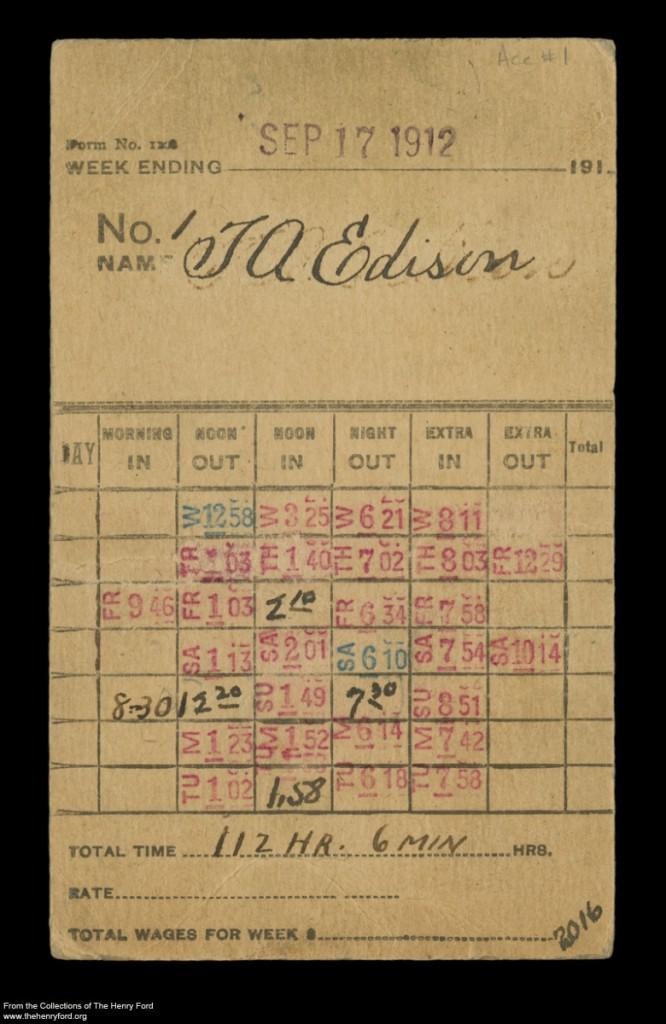 Acc #1
Form No.
SEP 17 1912
WEEK ENDING 191
No. 1
NAME T A Edison
DAY MORNING IN NOON OUT NOON IN NIGHT OUT EXTRA IN EXTRA OUT Total
W 12 58 W 3 25 W 6 21 W 8 11
FR 1 03 TH 1 40 TH 7 02 TH 8 03 FR 12 29
FR 9 46 FR 1 03 2 10 FR 6 34 FR 7 58
SA 1 13 SA 2 01 SA 6 10 SA 7 54 SA 10 14
8-30 12 20 SU 1 49 7 30 SU 8 51
M 1 23 M 1 52 M 6 14 M 7 42
TU 1 02 1,58 TU 6 18 TU 7 58
TOTAL TIME 112 HR. 6 MIN HRS.
RATE
TOTAL WAGES FOR WEEK $
2016
From the Collections of The Henry Ford
www.thehenryford.org